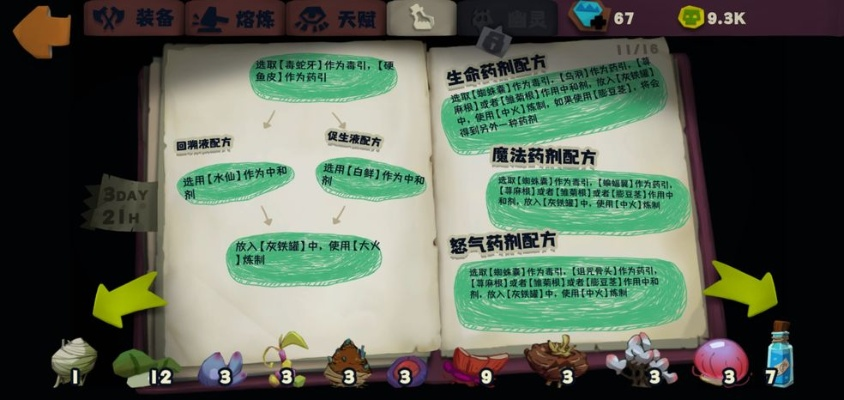 装备
熔炼
天赋
幽灵
67
9.3K
11/16
3DAY
21H
选取【毒蛇牙】作为毒引,【硬
鱼皮】作为药引
回溯液配方
促生液配方
选用【水仙】作为中和
剂
选用【白鲜】作为中和
剂
放入【灰铁罐】中,使用【大火
】炼制
生命药剂配方
选取【蜘蛛囊】作为毒引,【乌羽】作为药引,【荨
麻根】或者【雏菊根】作用中和剂,放入【灰铁罐】
中,使用【中火】炼制,如果使用【膨豆茎】,将会
得到另外一种药剂
魔法药剂配方
选取【蜘蛛囊】作为毒引,【蝙蝠翼】作为药引,
【荨麻根】或者【雏菊根】或者【膨豆茎】作用中
和剂,放入【灰铁罐】中,使用【中火】炼制
怒气药剂配方
选取【蜘蛛囊】作为毒引,【诅咒骨头】作为药引,
【荨麻根】或者【雏菊根】或者【膨豆茎】作用中和
剂,放入【灰铁罐】中,使用【中火】炼制
1
12
3
3
3
3
9
3
3
3
7